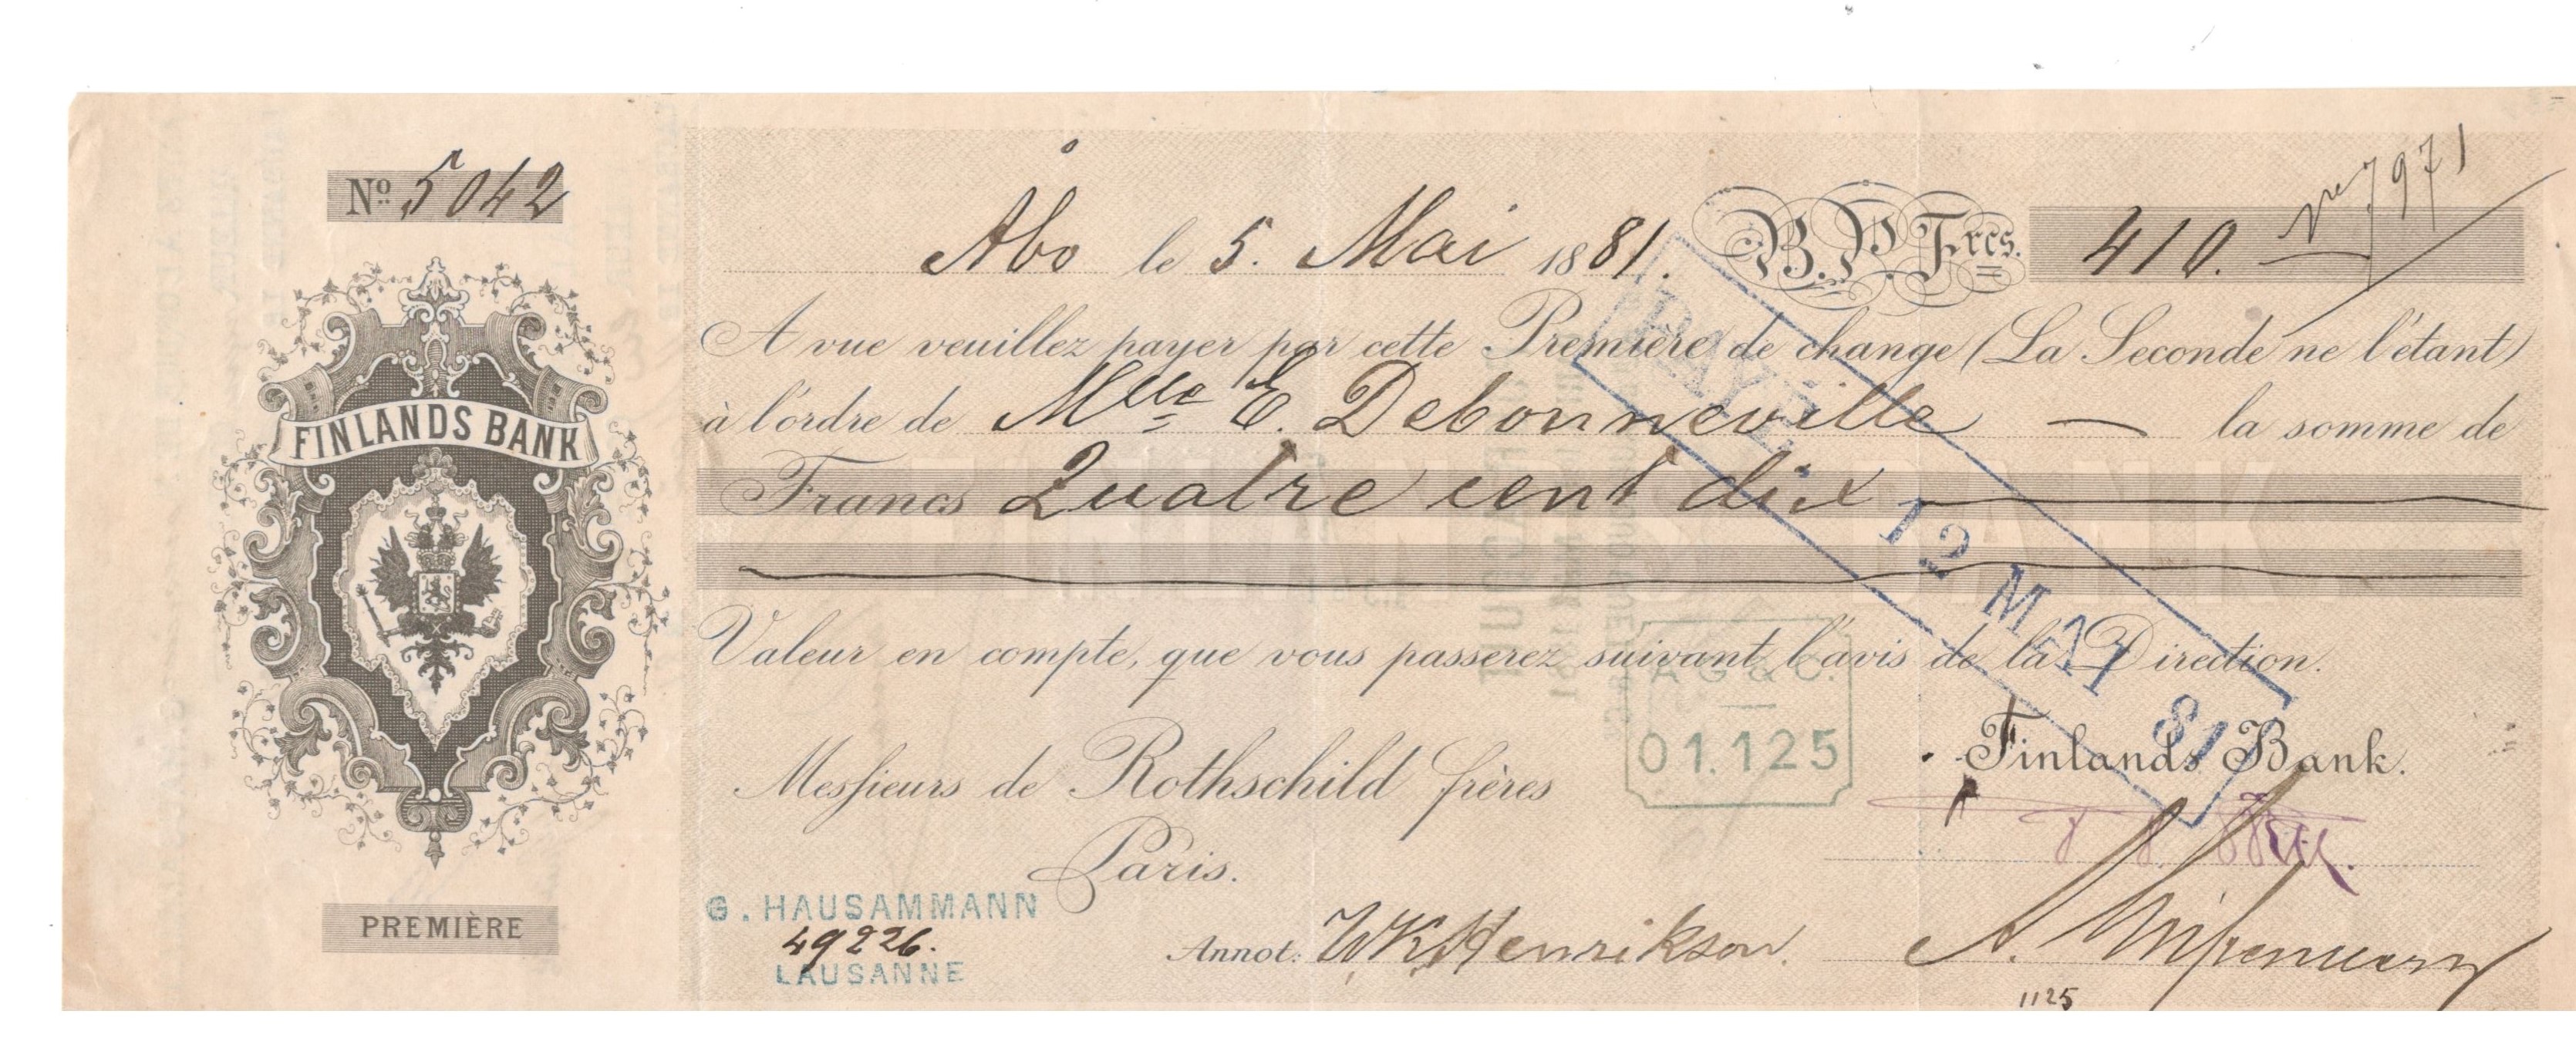 Nº 5042
FINLANDS BANK
PREMIÈRE
Åbo le 5. Mai 1881. B.P. Frcs. 410.
7971
A vue veuillez payer par cette Première de change (La Seconde ne l'étant)
à l'ordre de Mlle E. Debonneville — la somme de
Francs Quatre cent dix
FINLANDS BANK
Valeur en compte, que vous passerez suivant l'avis de la Direction.
PAYÉ
12 MAI 81
A G & C.
01.125
Messieurs de Rothschild frères
Paris.
Finlands Bank.
G. HAUSAMMANN
49226.
LAUSANNE
Annot: W.K. Henrikson.
A.
1125